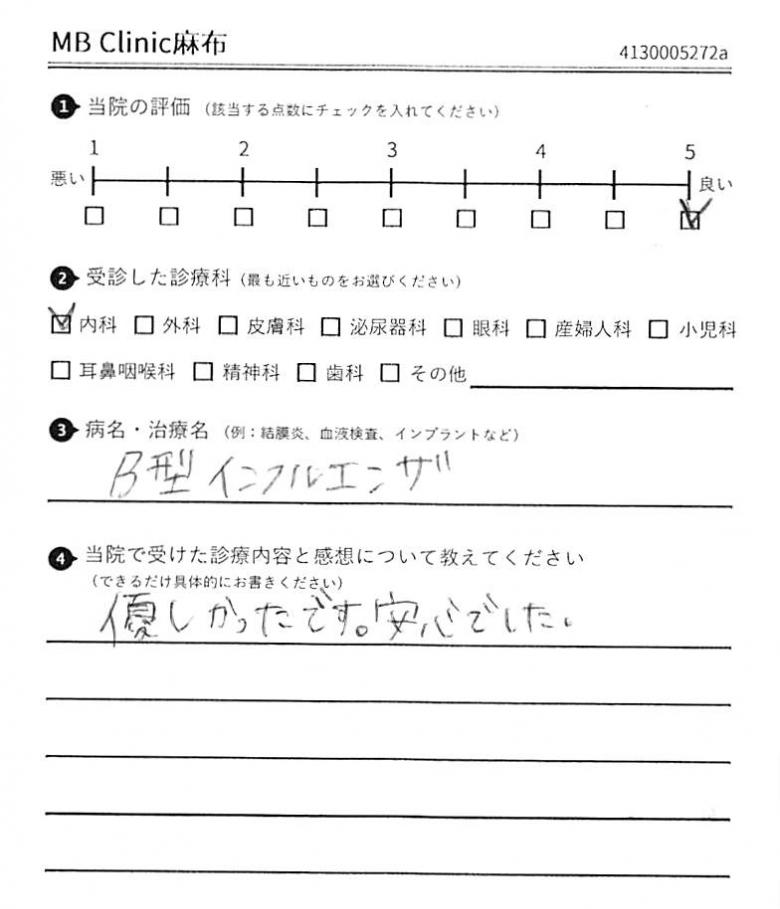 MB Clinic麻布
4130005272a
1 当院の評価 (該当する点数にチェックを入れてください)
1 2 3 4 5
悪い 良い
2 受診した診療科 (最も近いものをお選びください)
内科 外科 皮膚科 泌尿器科 眼科 産婦人科 小児科
耳鼻咽喉科 精神科 歯科 その他
3 病名・治療名 (例:結膜炎、血液検査、インプラントなど)
B型インフルエンザ
4 当院で受けた診療内容と感想について教えてください
(できるだけ具体的にお書きください)
優しかったです。安心でした。